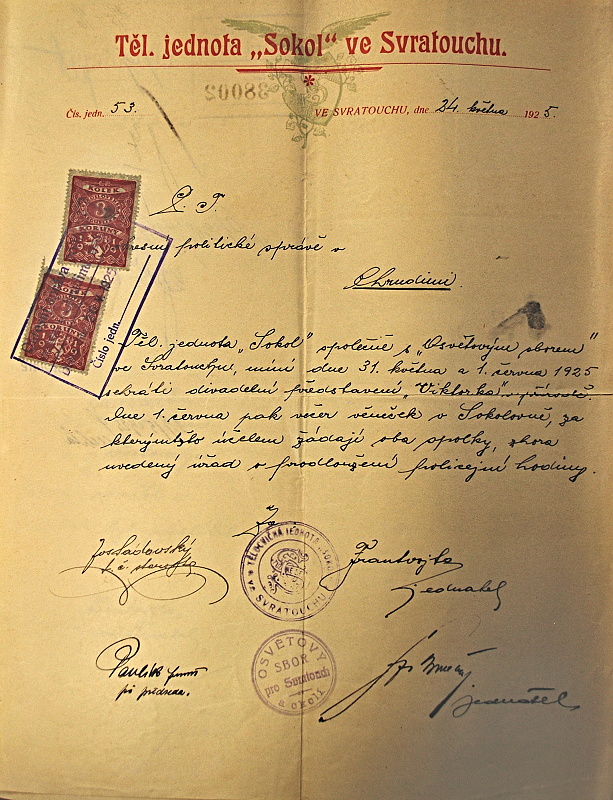 Těl. jednota „Sokol“ ve Svratouchu.
38002
Čís. jedn. 53. VE SVRATOUCHU, dne 24. května 1925.
P. T.
politické správě v
Chrudimi.
KOLEK
3
KORUNY
KOLEK
KORUNY
Číslo jedn.
Těl. jednota „Sokol“ společně s „Osvětovým sborem“
ve Svratouchu, míní dne 31. května a 1. června 1925
sehráti divadelní představení „Viktorka“ v přírodě.
Dne 1. června pak večer věneček v Sokolovně, za
kterýmžto účelem žádají oba spolky, shora
uvedený úřad o prodloužení policejní hodiny.
Za
TĚLOCVIČNÁ JEDNOTA „SOKOL“
VE SVRATOUCHU
Jos. Sádovský
t. č. starosta
Frant. Vojta
jednatel
OSVĚTOVÝ
SBOR
pro Svratouch
a okolí
př. předseda.
jednatel